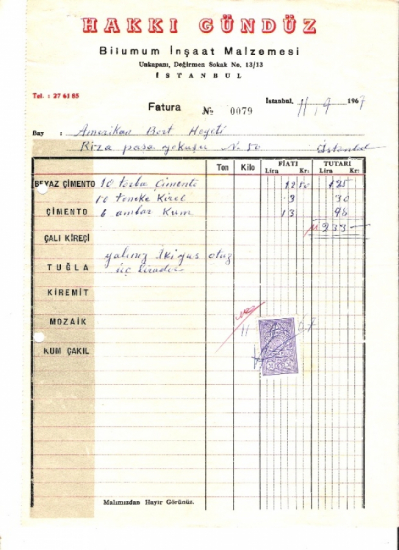 HAKKI GÜNDÜZ
Bilumum İnşaat Malzemesi
Unkapanı, Değirmen Sokak No. 13/13
İSTANBUL
Tel. : 27 41 85
Fatura № 0079 İstanbul, 11/9/1969
Bay : Amerikan Bort Heyeti
Riza paşa yokuşu N. 50 İstanbul
Ton Kilo FİATI TUTARI
Lira Kr: Lira Kr:
BEYAZ ÇİMENTO 10 torba Çimento 12 50 125
10 teneke Kireç 3 30
ÇİMENTO 6 ambar Kum 13
233
ÇALI KİREÇİ
yalınız İki yüz otuz
TUĞLA üç liradır
KİREMİT
MOZAİK
KUM ÇAKIL
Malımızdan Hayır Görünüz.